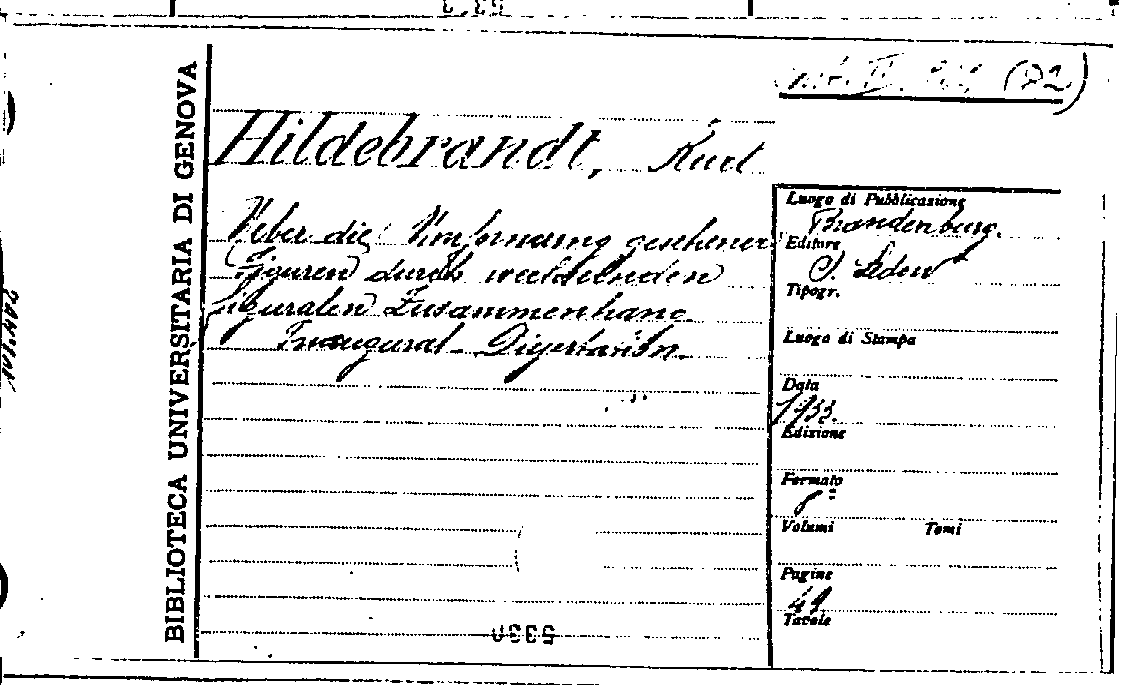 BIBLIOTECA UNIVERSITARIA DI GENOVA
(82)
Hildebrandt, Kurt
Ueber die Umformung gesehener
Figuren durch wechselnden
figuralen Zusammenhang
Inaugural-Dissertation.
Luogo di Pubblicazione
Brandenburg.
Editore
Tipogr.
Luogo di Stampa
Data
1933.
Edizione
Formato
8º
Volumi Tomi
Pagine
49
Tavole